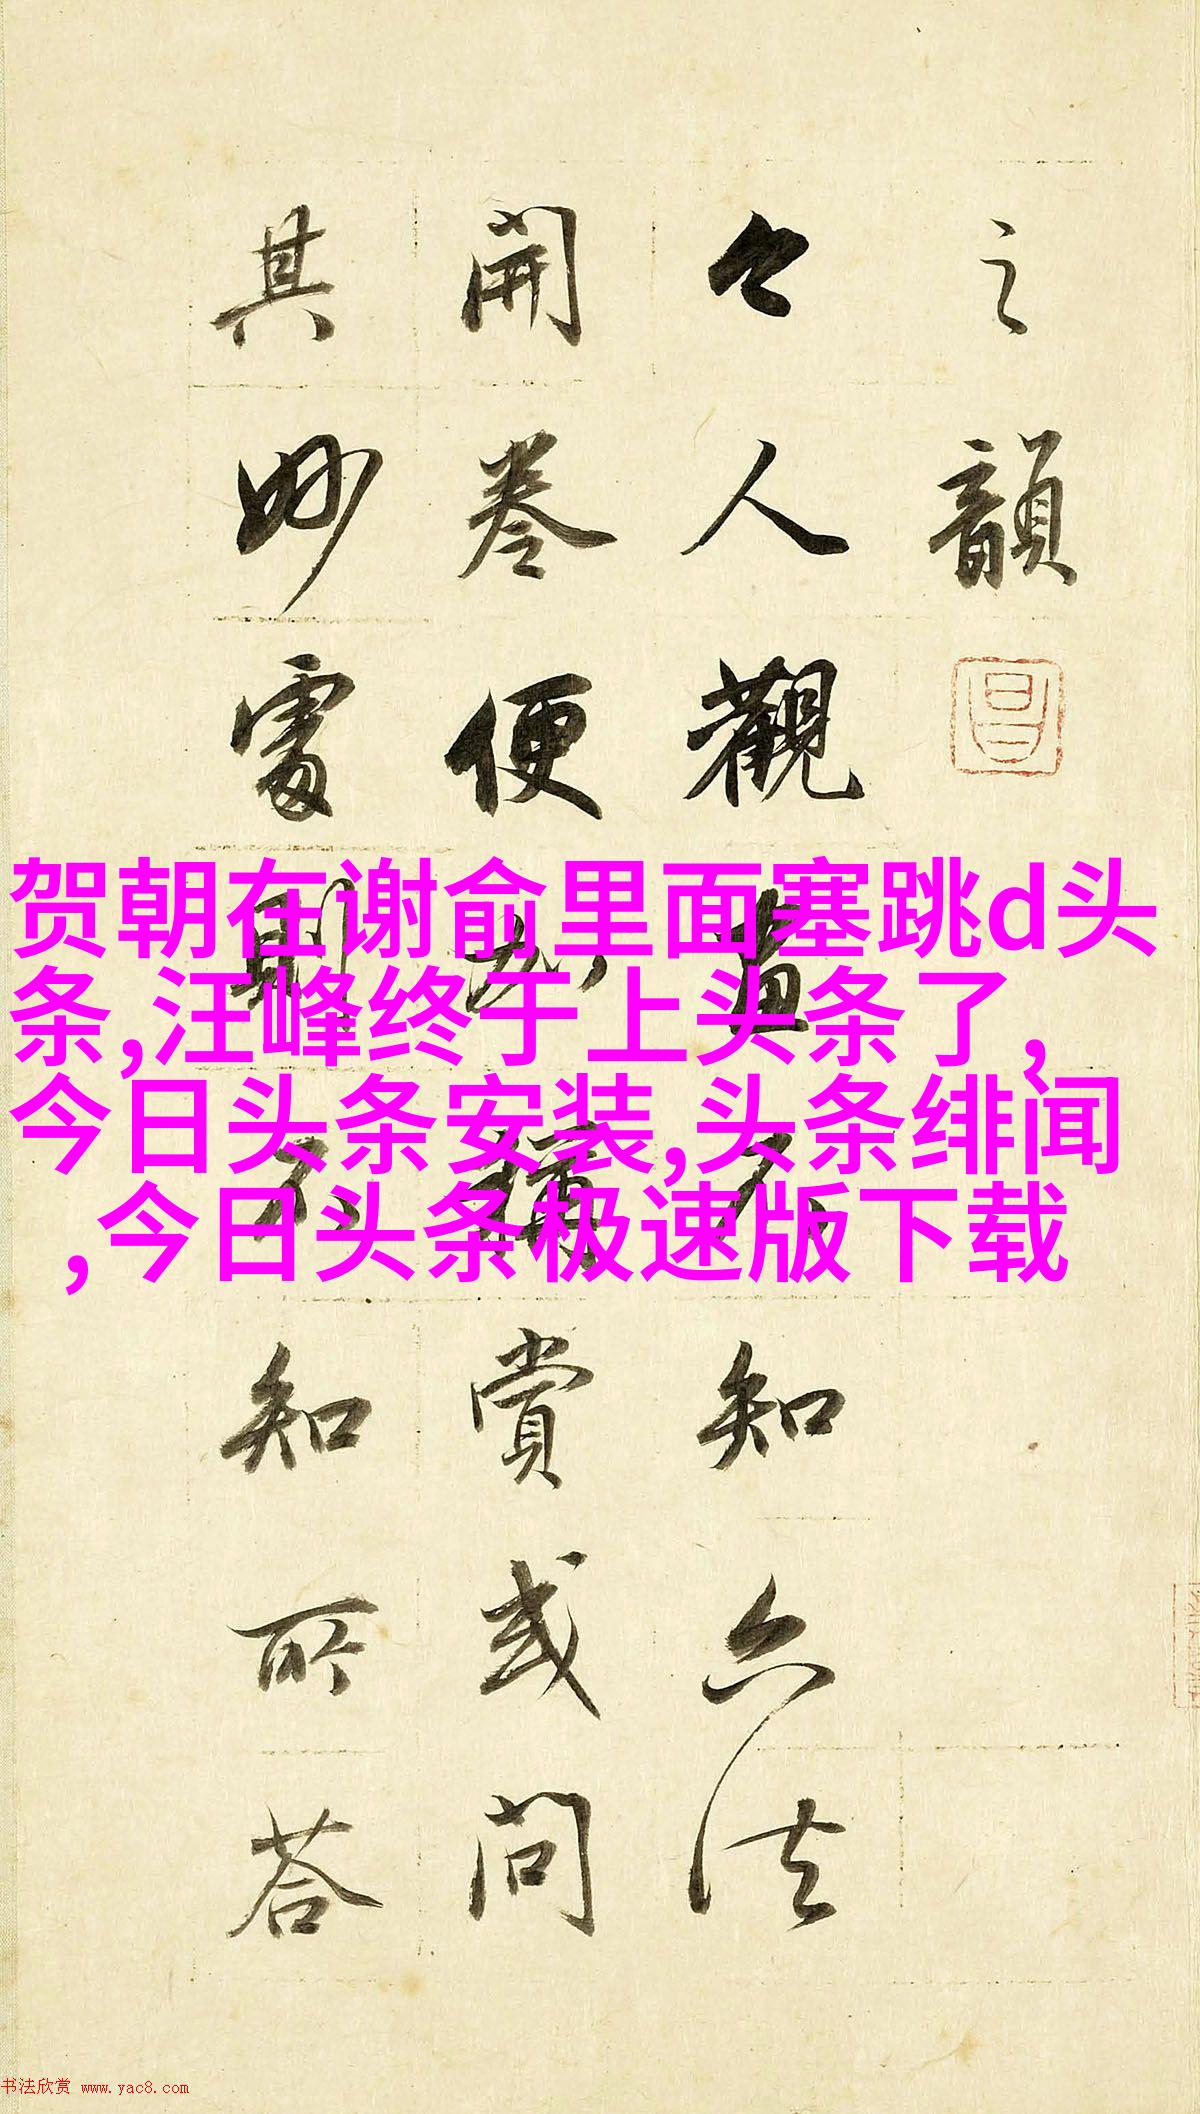 之韻
今人觀畫不知六法
開卷便加稱賞或問
其妙處則不知所荅
贺朝在谢俞里面塞跳d头
条,汪峰终于上头条了,
今日头条安装,头条绯闻
,今日头条极速版下载
书法欣赏 www.yac8.com